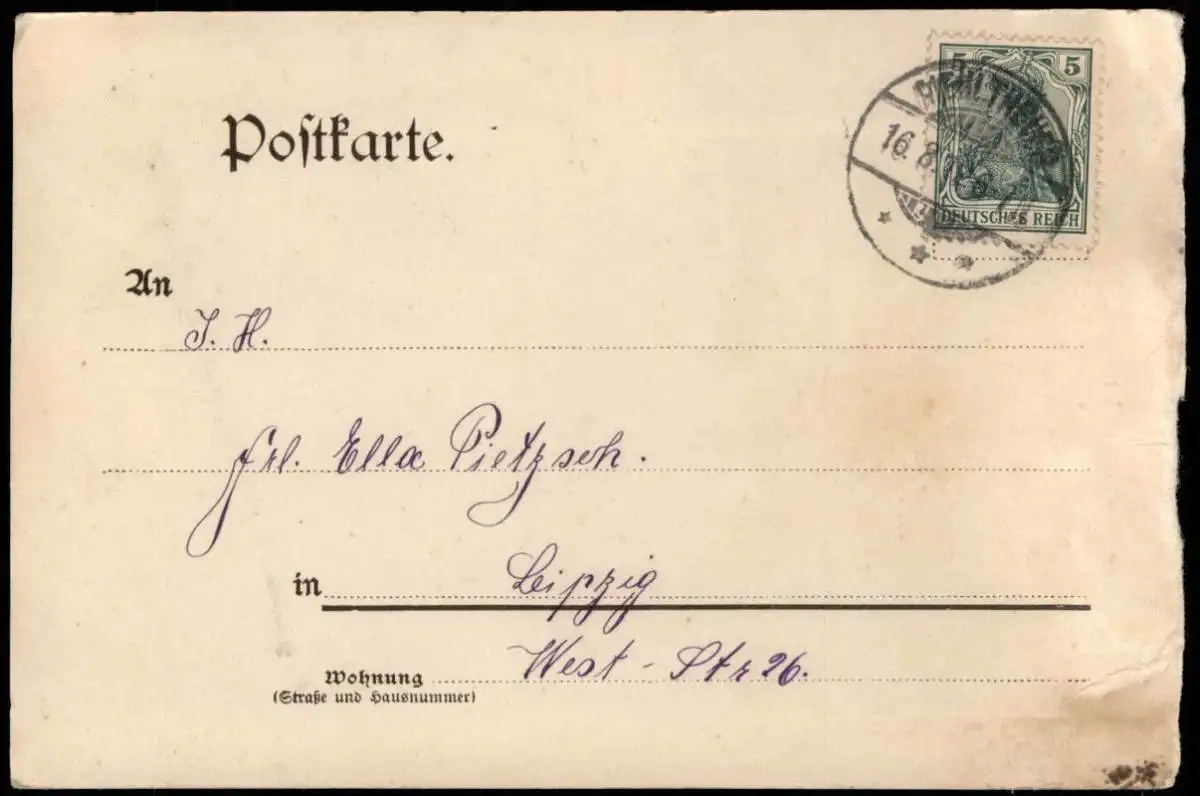 Postkarte.
5 5
16. 8.
DEUTSCHES REICH
An
J. H.
Frl. Ella Pietzsch.
in Leipzig
Wohnung West-Str 26.
(Straße und Hausnummer)